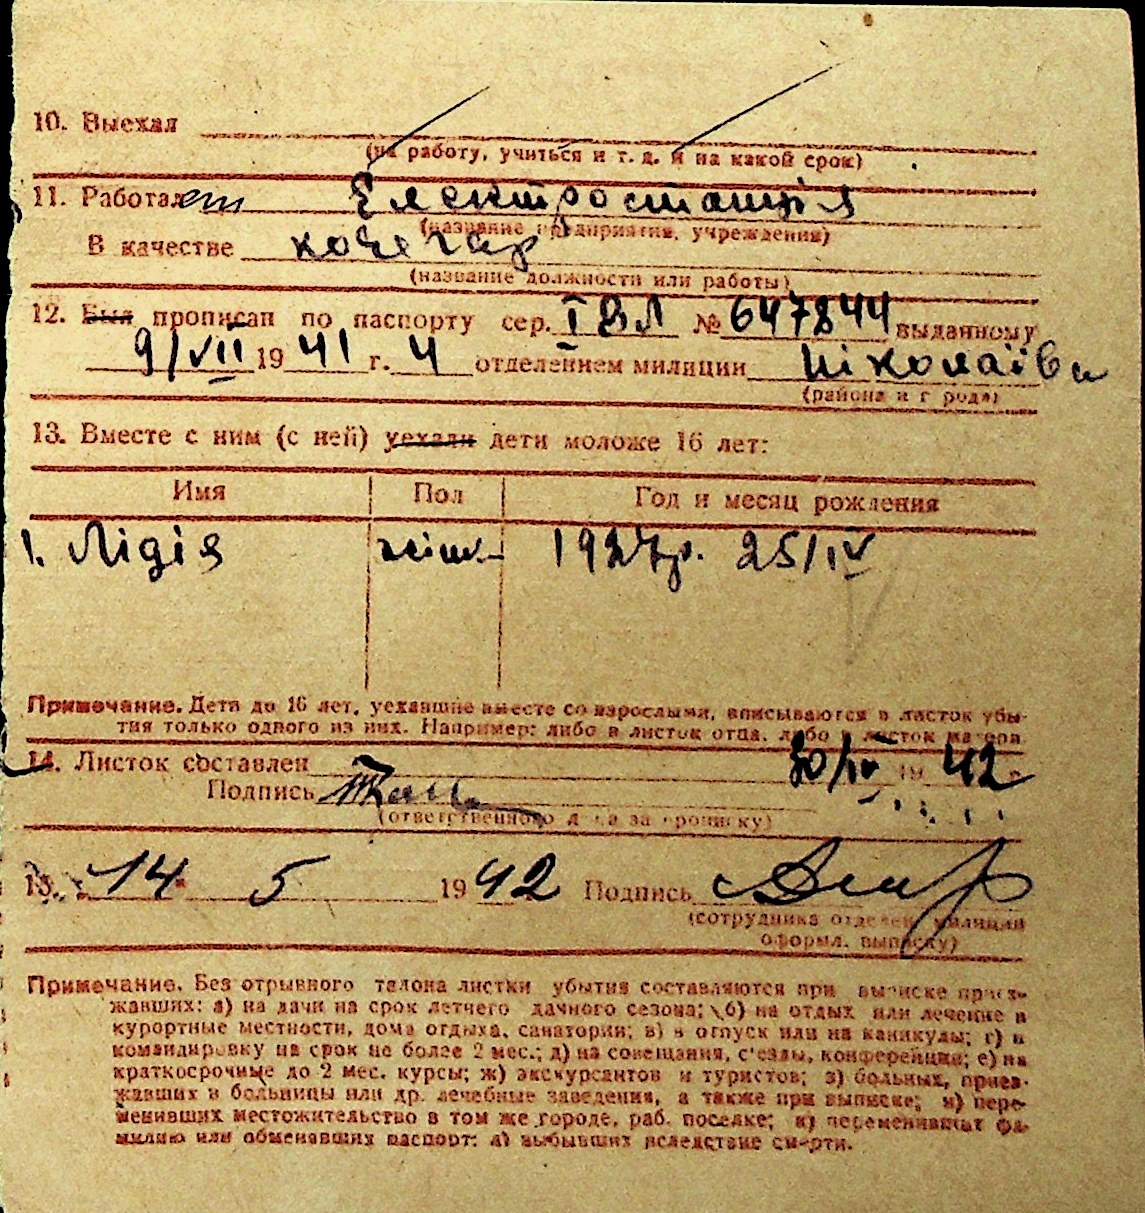 10. Выехал
(на работу, учиться и т. д. и на какой срок)
11. Работает Електростанція
(название предприятия, учреждения)
В качестве кочегар
(название должности или работы)
12. Был прописан по паспорту сер. I ВЛ № 647844 выданному
9/VII 1941 г. 4 отделением милиции Ніколаїва
(района и города)
13. Вместе с ним (с ней) уехали дети моложе 16 лет:
Имя Пол Год и месяц рождения
1. Лідія жіш. 1927р. 25/IV
Примечание. Дети до 16 лет, уехавшие вместе со взрослыми, вписываются в листок убы-
тия только одного из них. Например: либо в листок отца, либо в листок матери
14. Листок составлен 30/IV 1942 г.
Подпись
(ответственного лица за прописку)
15. "14" 5 1942 Подпись
(сотрудника отделен. милиции
оформл. выписку)
Примечание. Без отрывного талона листки убытия составляются при выписке приез-
жавших: а) на дачи на срок летнего дачного сезона; б) на отдых или лечение в
курортные местности, дома отдыха, санатории; в) в отпуск или на каникулы; г) в
командировку на срок не более 2 мес.; д) на совещания, с'езды, конференции; е) на
краткосрочные до 2 мес. курсы; ж) экскурсантов и туристов; з) больных, приез-
жавших в больницы или др. лечебные заведения, а также при выписке; и) пере-
менивших местожительство в том же городе, раб. поселке; к) переменивших фа-
милию или обменявших паспорт; л) выбывших вследствие смерти.